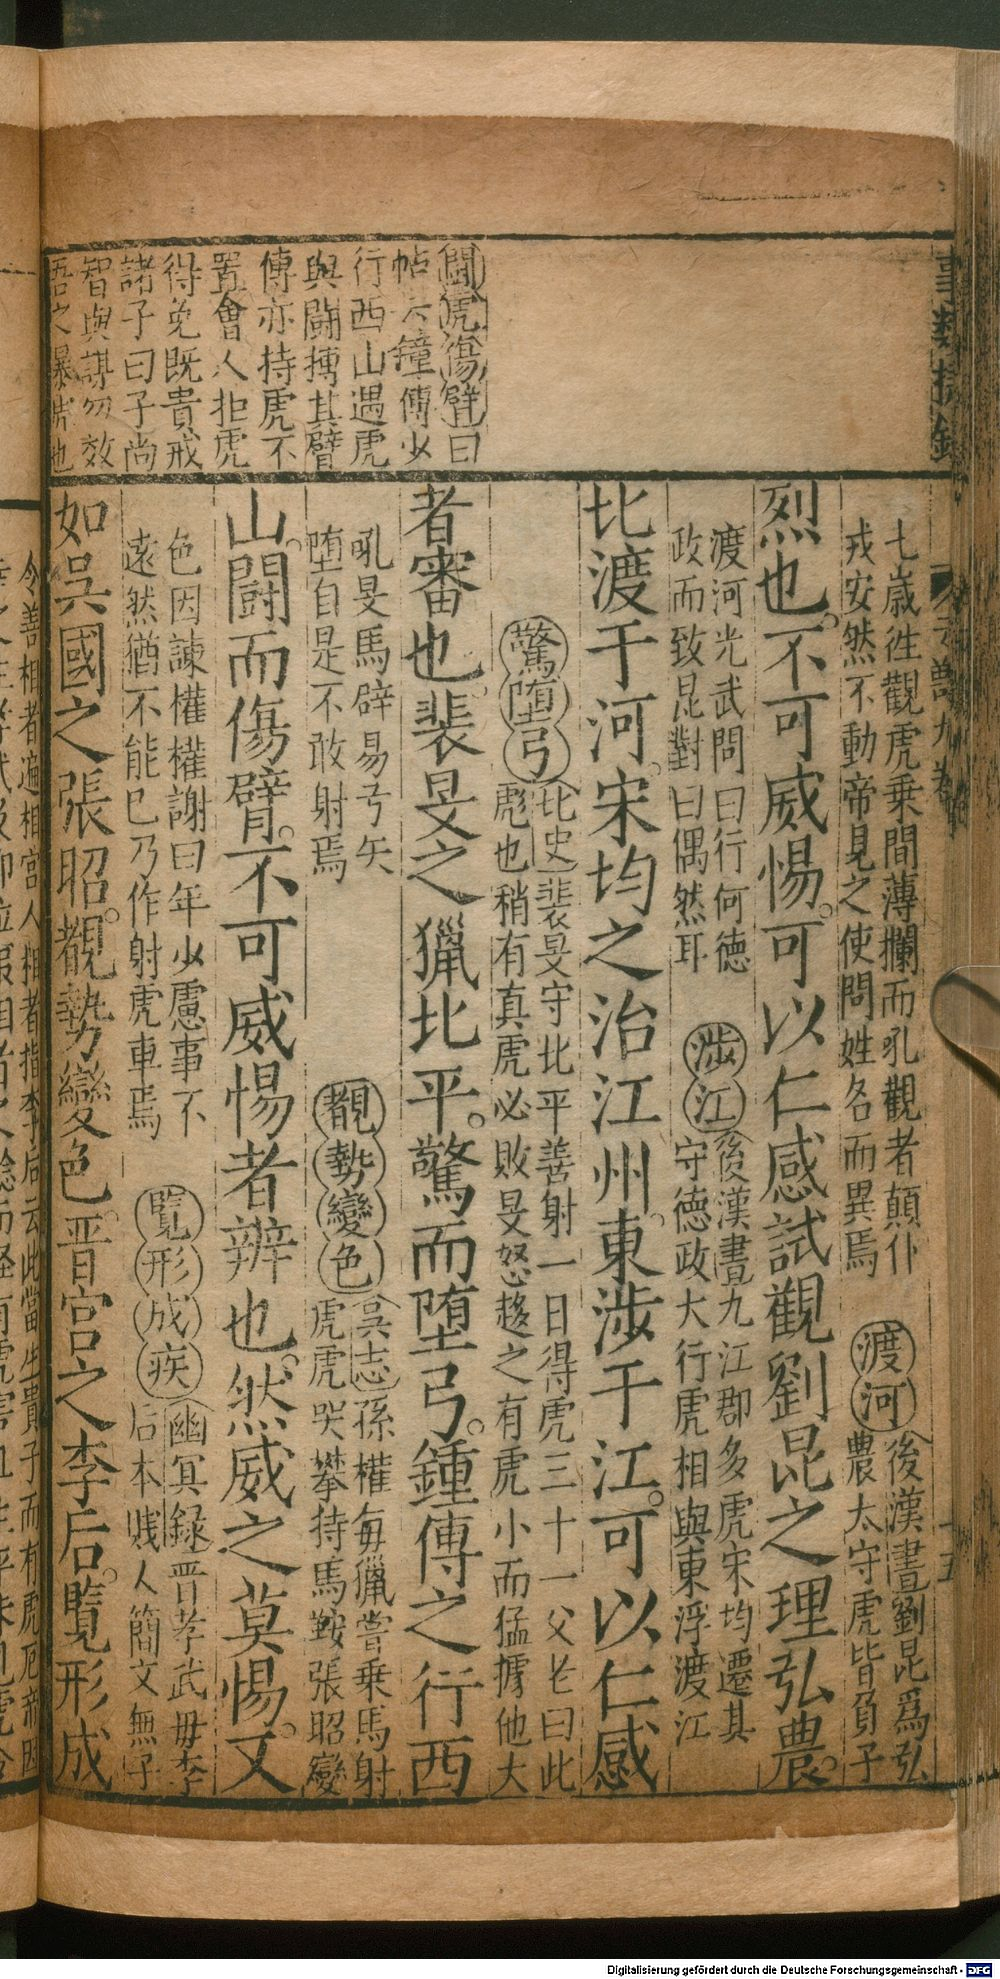 七歲徃觀虎乗間薄攔而吼觀者顛仆
戎安然不動帝見之使問姓名而異焉
渡河
後漢書劉昆爲弘
農太守虎皆負子
烈也。不可威惕。可以仁感試觀劉昆之理弘農。
渡河光武問曰行何德
政而致昆對曰偶然耳
渉江
後漢書九江郡多虎宋均遷其
守德政大行虎相與東浮渡江
比渡于河。宋均之治江州。東渉于江。可以仁感
驚堕弓
北史裴旻守北平善射一日得虎三十一父老曰此
彪也稍有真虎必敗旻怒趍之有虎小而猛據他大
者審也。裴旻之獵北平。驚而堕弓。鍾傳之行西
吼旻馬辟易弓矢
堕自是不敢射焉
覩勢變色
吳志孫權每獵嘗乗馬射
虎虎哭攀持馬鞍張昭變
山。鬪而傷臂。不可威惕者辨也。然威之莫惕。文
色因諫權權謝曰年少慮事不
遠然猶不能已乃作射虎車焉
覽形成疾
幽冥録晋孝武毋李
后本賎人簡文無子
如吳國之張昭。覩勢變色。晋宫之李后。覽形成
鬪虎傷臂曰
帖六鐘傳少
行西山遇虎
與鬪摶其臂
傳亦持虎不
置會人拒虎
得免既貴戒
諸子曰子尚
智與謀勿效
吾之暴虎也
令善相者遍相宫人相者指李后云此當生貴子而有虎厄
Digitalisierung gefördert durch die Deutsche Forschungsgemeinschaft - DFG